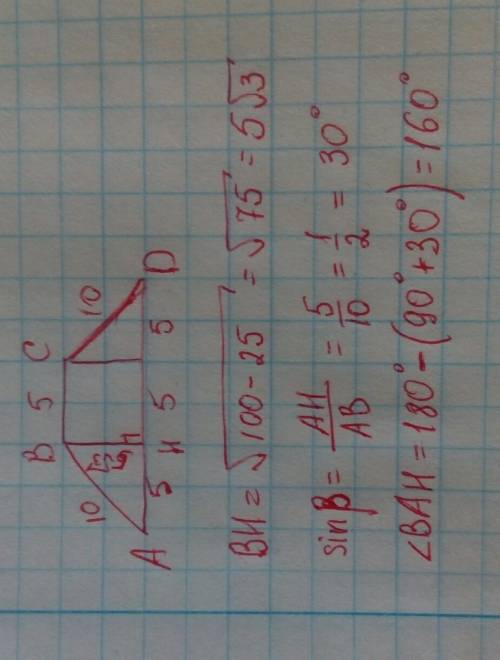 B 5 C
10 5√3 10
A 5 H 5 5 D
BH = √100 - 25 = √75 = 5√3
sin B = AH/AB = 5/10 = 1/2 = 30°
∠BAH = 180° - (90° + 30°) = 160°